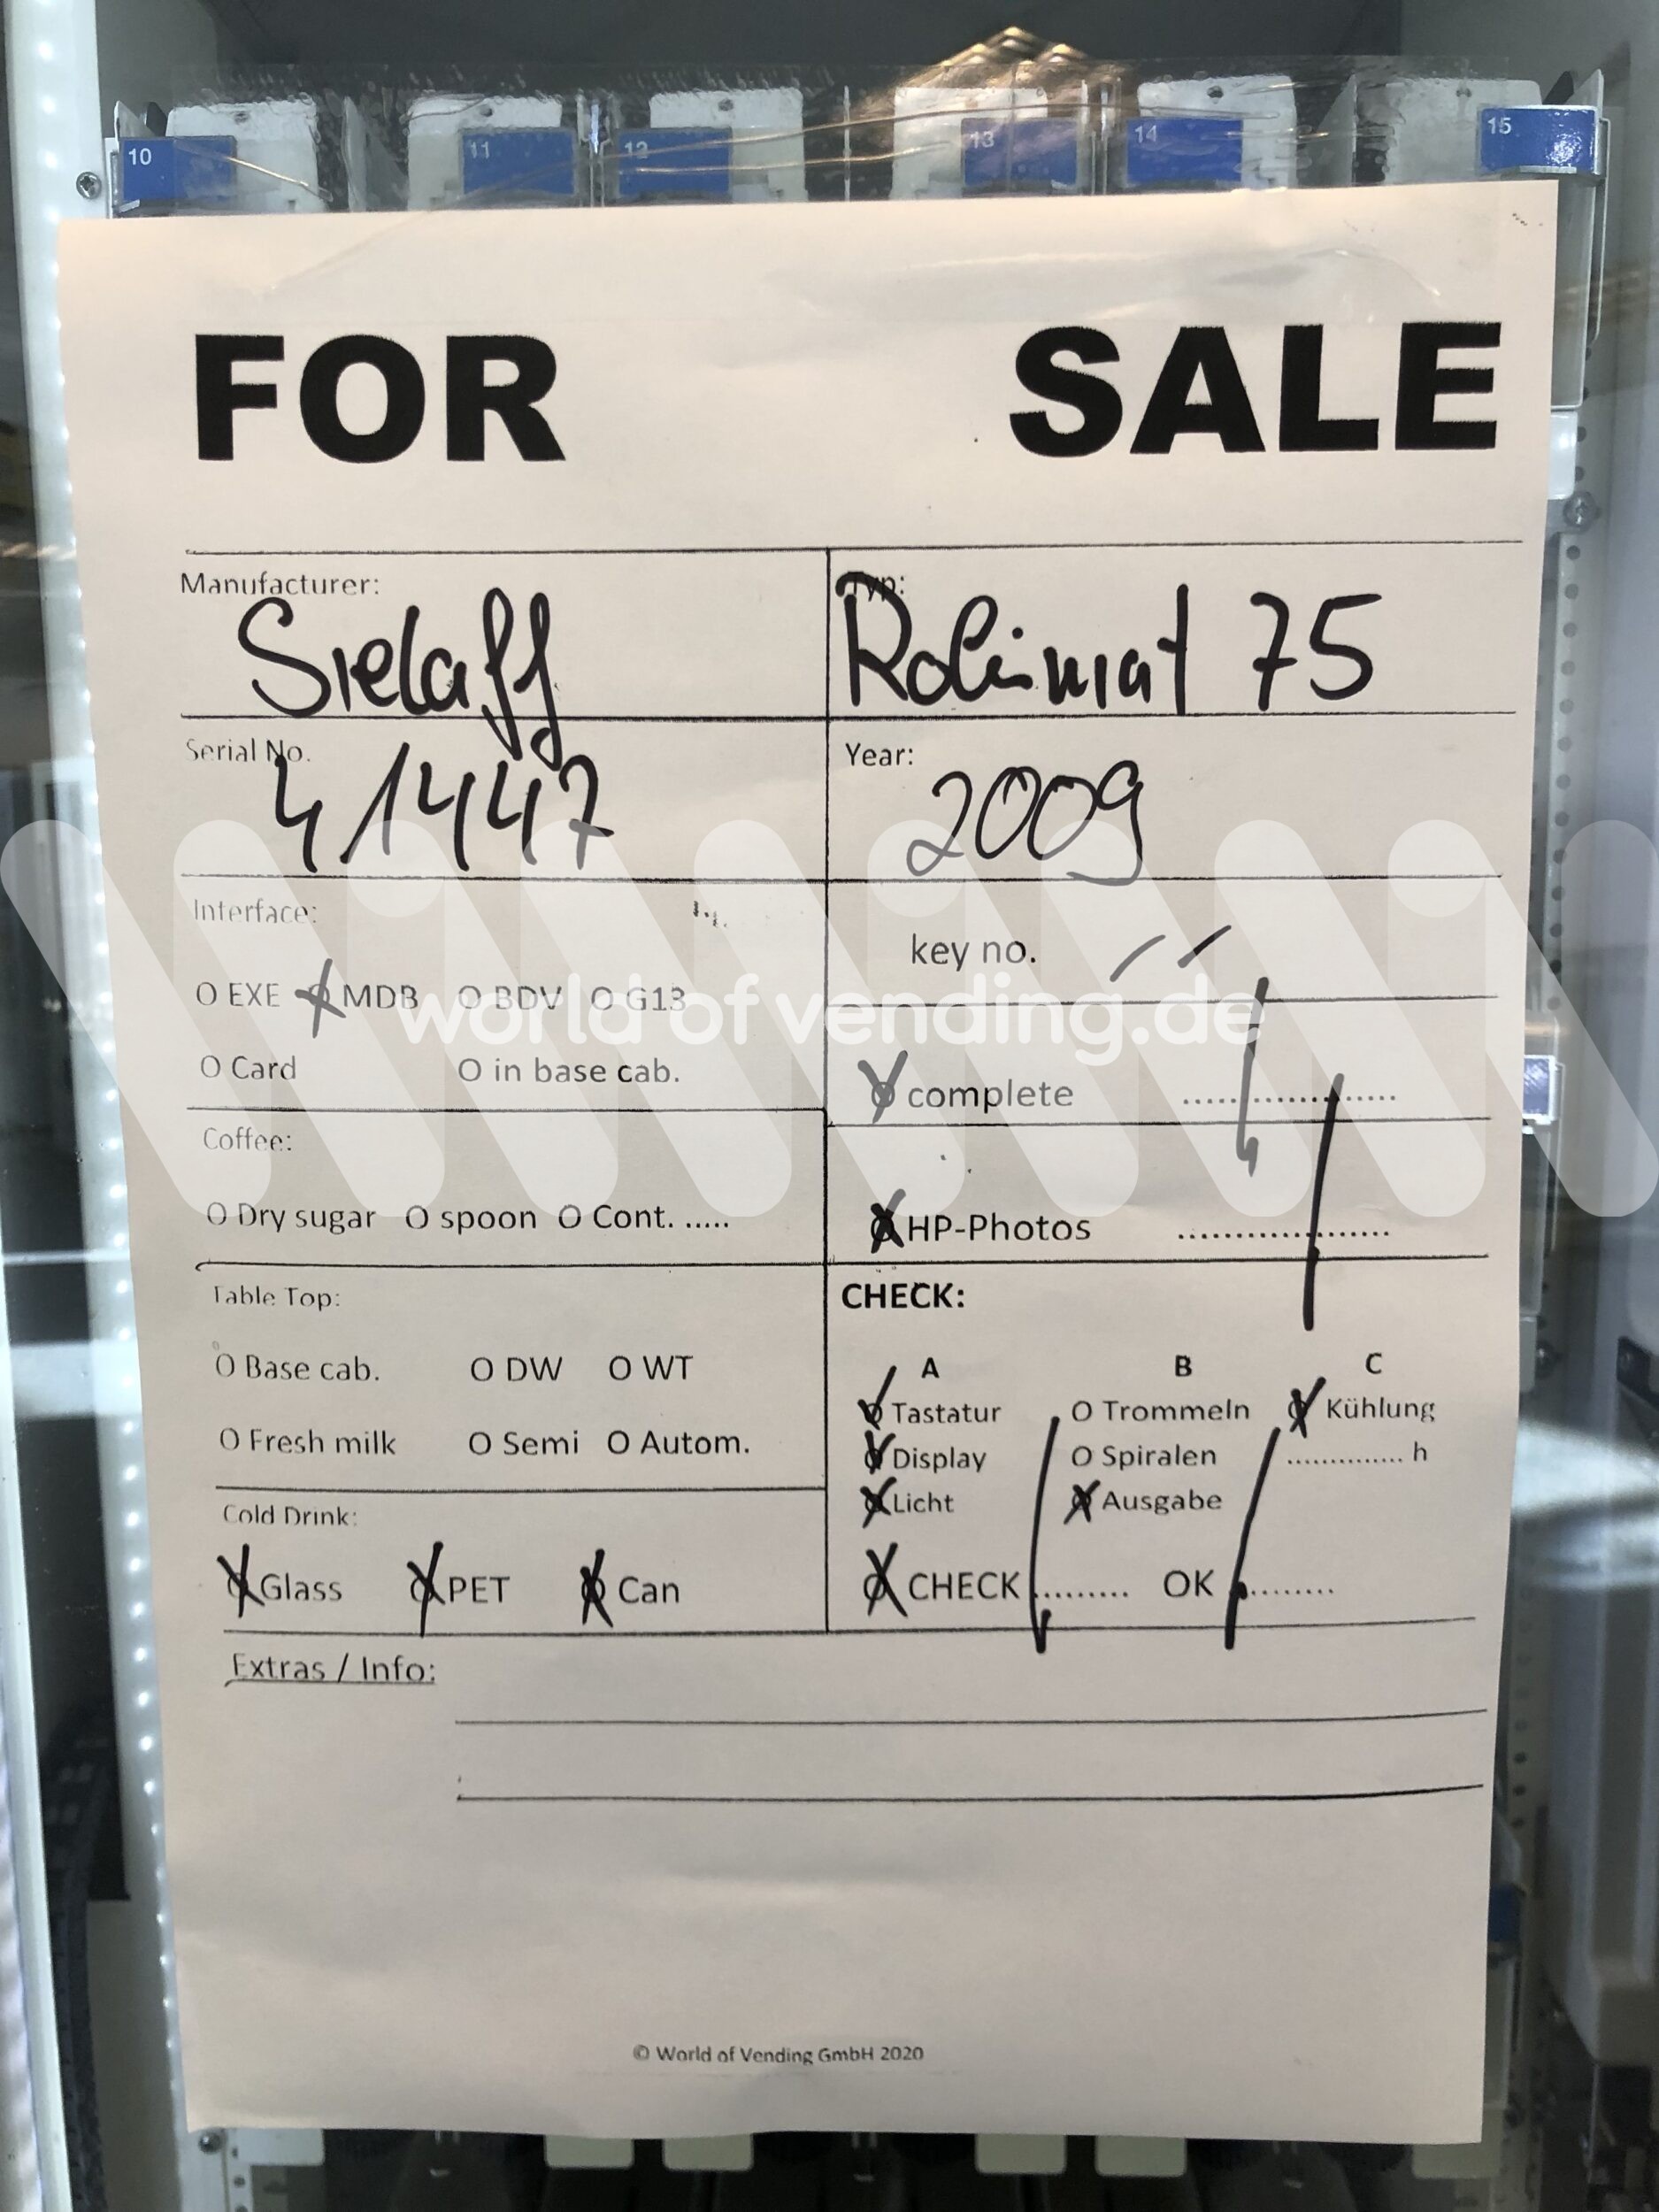 10 11 12 13 14 15
FOR SALE
Manufacturer: Typ:
Sielaff Robimat 75
Serial No. Year:
41447 2009
Interface:
key no. - -
O EXE O MDB O BDV O G13
world of vending.de
O Card O in base cab.
O complete ....................
Coffee:
O Dry sugar O spoon O Cont. .....
O HP-Photos ....................
Table Top: CHECK:
A B C
O Base cab. O DW O WT
O Tastatur O Trommeln O Kühlung
O Fresh milk O Semi O Autom.
O Display O Spiralen .............. h
O Licht O Ausgabe
Cold Drink:
O Glass O PET O Can
O CHECK .......... OK ..........
Extras / Info:
© World of Vending GmbH 2020